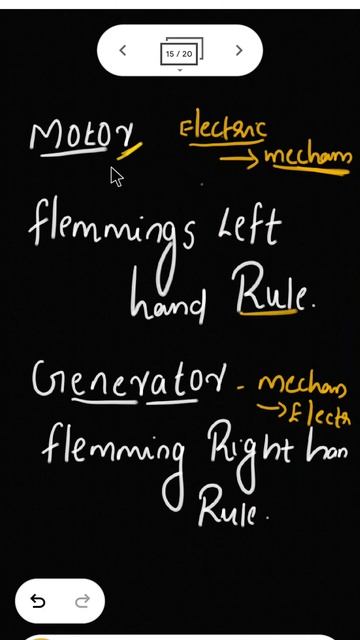 15 / 20
Motor Electric
→ mechans
flemmings Left
hand Rule.
Generator - mechans
→ Electr
flemming Right han
Rule.